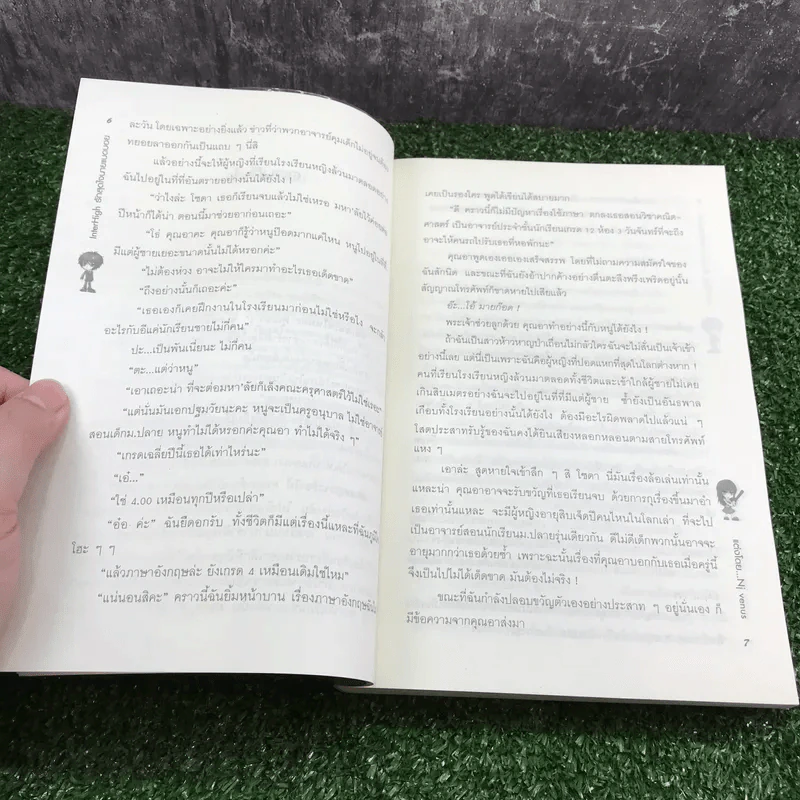 6
InterHigh รักสุดใจนายจอมจุ้น
ละวัน โดยเฉพาะอย่างยิ่งแล้ว ข่าวที่ว่าพวกอาจารย์คุมเด็กไม่อยู่จนต้อง
ทยอยลาออกกันเป็นแถบ ๆ นี่สิ
แล้วอย่างนี้จะให้ผู้หญิงที่เรียนโรงเรียนหญิงล้วนมาตลอดอย่าง
ฉันไปอยู่ในที่ที่อันตรายอย่างนั้นได้ยังไง !
“ว่าไงล่ะ โซดา เธอก็เรียนจบแล้วไม่ใช่เหรอ มหา'ลัยไว้ค่อยต่อ
ปีหน้าก็ได้น่า ตอนนี้มาช่วยอาก่อนเถอะ”
“โธ่ คุณอาคะ คุณอาก็รู้ว่าหนูป๊อดมากแค่ไหน หนูไปอยู่ในที่ที่
มีแต่ผู้ชายเยอะขนาดนั้นไม่ได้หรอกค่ะ”
“ไม่ต้องห่วง อาจะไม่ให้ใครมาทำอะไรเธอเด็ดขาด”
“ถึงอย่างนั้นก็เถอะค่ะ”
“เธอเองก็เคยฝึกงานในโรงเรียนมาก่อนไม่ใช่หรือไง จะกลัว
อะไรกับอีแค่นักเรียนชายไม่กี่คน”
ปะ...เป็นพันเนี่ยนะ ไม่กี่คน
“ตะ...แต่ว่าหนู”
“เอาเถอะน่า ที่จะต่อมหา'ลัยก็เล็งคณะครุศาสตร์ไว้ไม่ใช่เหรอ”
“แต่นั่นมันเอกปฐมวัยนะคะ หนูจะเป็นครูอนุบาล ไม่ใช่อาจารย์
สอนเด็กม.ปลาย หนูทำไม่ได้หรอกค่ะคุณอา ทำไม่ได้จริง ๆ”
“เกรดเฉลี่ยปีนี้เธอได้เท่าไหร่นะ”
“เอ๋...”
“ใช่ 4.00 เหมือนทุกปีหรือเปล่า”
“อ๋อ ค่ะ” ฉันยืดอกรับ ทั้งชีวิตก็มีแต่เรื่องนี้แหละที่ฉันภูมิใจ
โฮะ ๆ ๆ
“แล้วภาษาอังกฤษล่ะ ยังเกรด 4 เหมือนเดิมใช่ไหม”
“แน่นอนสิคะ” คราวนี้ฉันยิ้มหน้าบาน เรื่องภาษาอังกฤษฉันไม่
เคยเป็นรองใคร พูดได้เขียนได้สบายมาก
“ดี คราวนี้ก็ไม่มีปัญหาเรื่องใช้ภาษา ตกลงเธอสอนวิชาคณิต-
ศาสตร์ เป็นอาจารย์ประจำชั้นนักเรียนเกรด 12 ห้อง 3 วันจันทร์ที่จะถึง
อาจะให้คนรถไปรับเธอที่หอพักนะ”
คุณอาพูดเองเออเองเสร็จสรรพ โดยที่ไม่ถามความสมัครใจของ
ฉันสักนิด และขณะที่ฉันยังอ้าปากค้างอย่างตื่นตะลึงพรึงเพริดอยู่นั้น
สัญญาณโทรศัพท์ก็ขาดหายไปเสียแล้ว
อ๊ะ...โอ้ มายก๊อด !
พระเจ้าช่วยลูกด้วย คุณอาทำอย่างนี้กับหนูได้ยังไง !
ถ้าฉันเป็นสาวห้าวหาญป่าเถื่อนไม่กลัวใครฉันจะไม่สั่นเป็นเจ้าเข้า
อย่างนี้เลย แต่นี่เป็นเพราะฉันคือผู้หญิงที่ปอดแหกที่สุดในโลกต่างหาก !
คนที่เรียนโรงเรียนหญิงล้วนมาตลอดทั้งชีวิตและเข้าใกล้ผู้ชายไม่เคย
เกินสิบเมตรอย่างฉันจะไปอยู่ในที่ที่มีแต่ผู้ชาย ซ้ำยังเป็นอันธพาล
เกือบทั้งโรงเรียนอย่างนั้นได้ยังไง ต้องมีอะไรผิดพลาดไปแล้วแน่ ๆ
โสตประสาทรับรู้ของฉันคงได้ยินเสียงหลอกหลอนตามสายโทรศัพท์
แหง ๆ
เอาล่ะ สูดหายใจเข้าลึก ๆ สิ โซดา นี่มันเรื่องล้อเล่นเท่านั้น
แหละน่า คุณอาอาจจะรับขวัญที่เธอเรียนจบ ด้วยการกุเรื่องขึ้นมาอำ
เธอเท่านั้นแหละ จะมีผู้หญิงอายุสิบเจ็ดปีคนไหนในโลกเล่า ที่จะไป
เป็นอาจารย์สอนนักเรียนม.ปลายรุ่นเดียวกัน ดีไม่ดีเด็กพวกนั้นอาจจะ
อายุมากกว่าเธอด้วยซ้ำ เพราะฉะนั้นเรื่องที่คุณอาบอกกับเธอเมื่อครู่นี้
จึงเป็นไปไม่ได้เด็ดขาด มันต้องไม่จริง !
ขณะที่ฉันกำลังปลอบขวัญตัวเองอย่างประสาท ๆ อยู่นั่นเอง ก็
มีข้อความจากคุณอาส่งมา
แต่งโดย...Nj venus
7